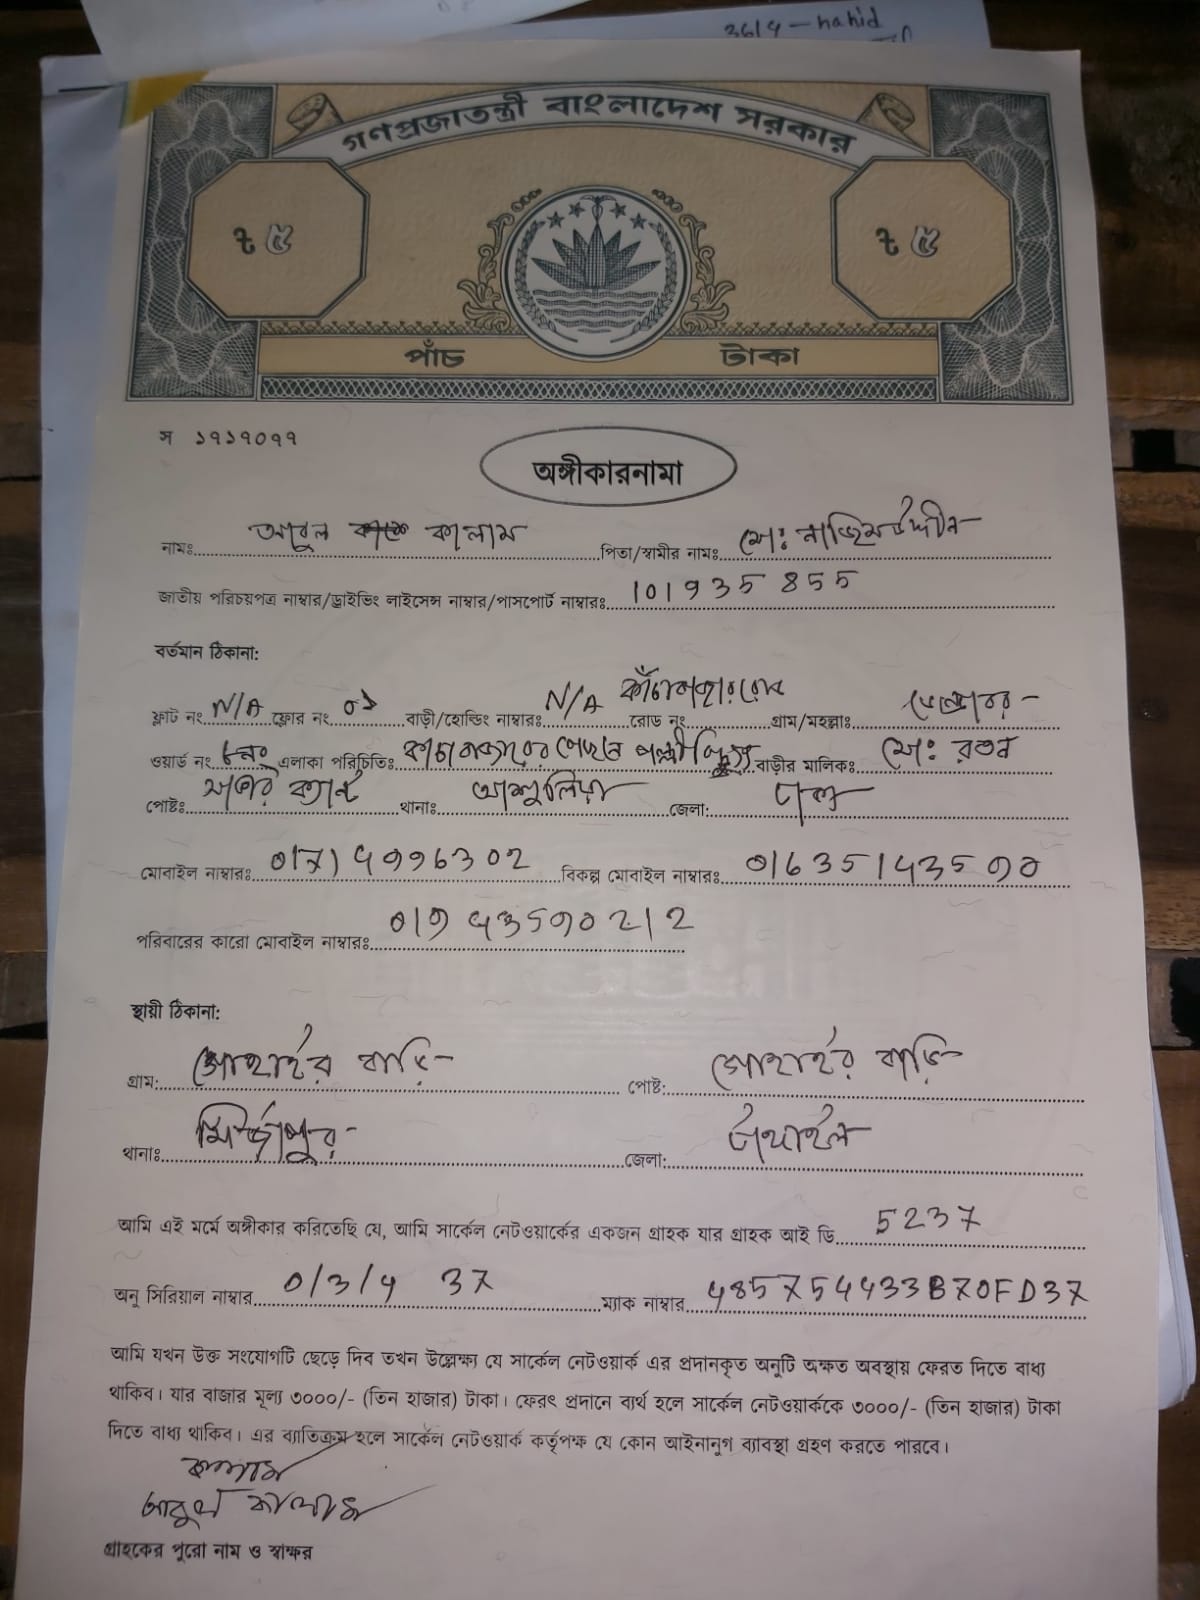 3614 - nahid
গণপ্রজাতন্ত্রী বাংলাদেশ সরকার
৳ ৫ ৳ ৫
পাঁচ টাকা
স ১৭১৭০৭৭
অঙ্গীকারনামা
নামঃ আবুল কালাম পিতা/স্বামীর নামঃ মোঃ নাজিমউদ্দীন
জাতীয় পরিচয়পত্র নাম্বার/ড্রাইভিং লাইসেন্স নাম্বার/পাসপোর্ট নাম্বারঃ 101935 855
বর্তমান ঠিকানা:
ফ্লাট নং N/A ফ্লোর নং ০১ বাড়ী/হোল্ডিং নাম্বারঃ N/A রোড নং কাঁচাবাজাররোড গ্রাম/মহল্লাঃ
ওয়ার্ড নং ৮নং এলাকা পরিচিতিঃ কাচাবাজারের পেছনে পল্লী বিদ্যুৎ বাড়ীর মালিকঃ মোঃ রতন
পোষ্টঃ থানাঃ আশুলিয়া জেলা: ঢাকা
মোবাইল নাম্বারঃ বিকল্প মোবাইল নাম্বারঃ 01635143590
পরিবারের কারো মোবাইল নাম্বারঃ
স্থায়ী ঠিকানা:
গ্রাম: গোহাইর বাড়ি পোষ্ট: গোহাইর বাড়ি
থানাঃ মির্জাপুর জেলা: টাংগাইল
আমি এই মর্মে অঙ্গীকার করিতেছি যে, আমি সার্কেল নেটওয়ার্কের একজন গ্রাহক যার গ্রাহক আই ডি 5237
অনু সিরিয়াল নাম্বার 0/3/4 37 ম্যাক নাম্বার 485754433B70FD37
আমি যখন উক্ত সংযোগটি ছেড়ে দিব তখন উল্লেক্ষ্য যে সার্কেল নেটওয়ার্ক এর প্রদানকৃত অনুটি অক্ষত অবস্থায় ফেরত দিতে বাধ্য
থাকিব। যার বাজার মূল্য ৩০০০/- (তিন হাজার) টাকা। ফেরৎ প্রদানে ব্যর্থ হলে সার্কেল নেটওয়ার্ককে ৩০০০/- (তিন হাজার) টাকা
দিতে বাধ্য থাকিব। এর ব্যাতিক্রম হলে সার্কেল নেটওয়ার্ক কর্তৃপক্ষ যে কোন আইনানুগ ব্যাবস্থা গ্রহণ করতে পারবে।
কালাম
আবুল কালাম
গ্রাহকের পুরো নাম ও স্বাক্ষর